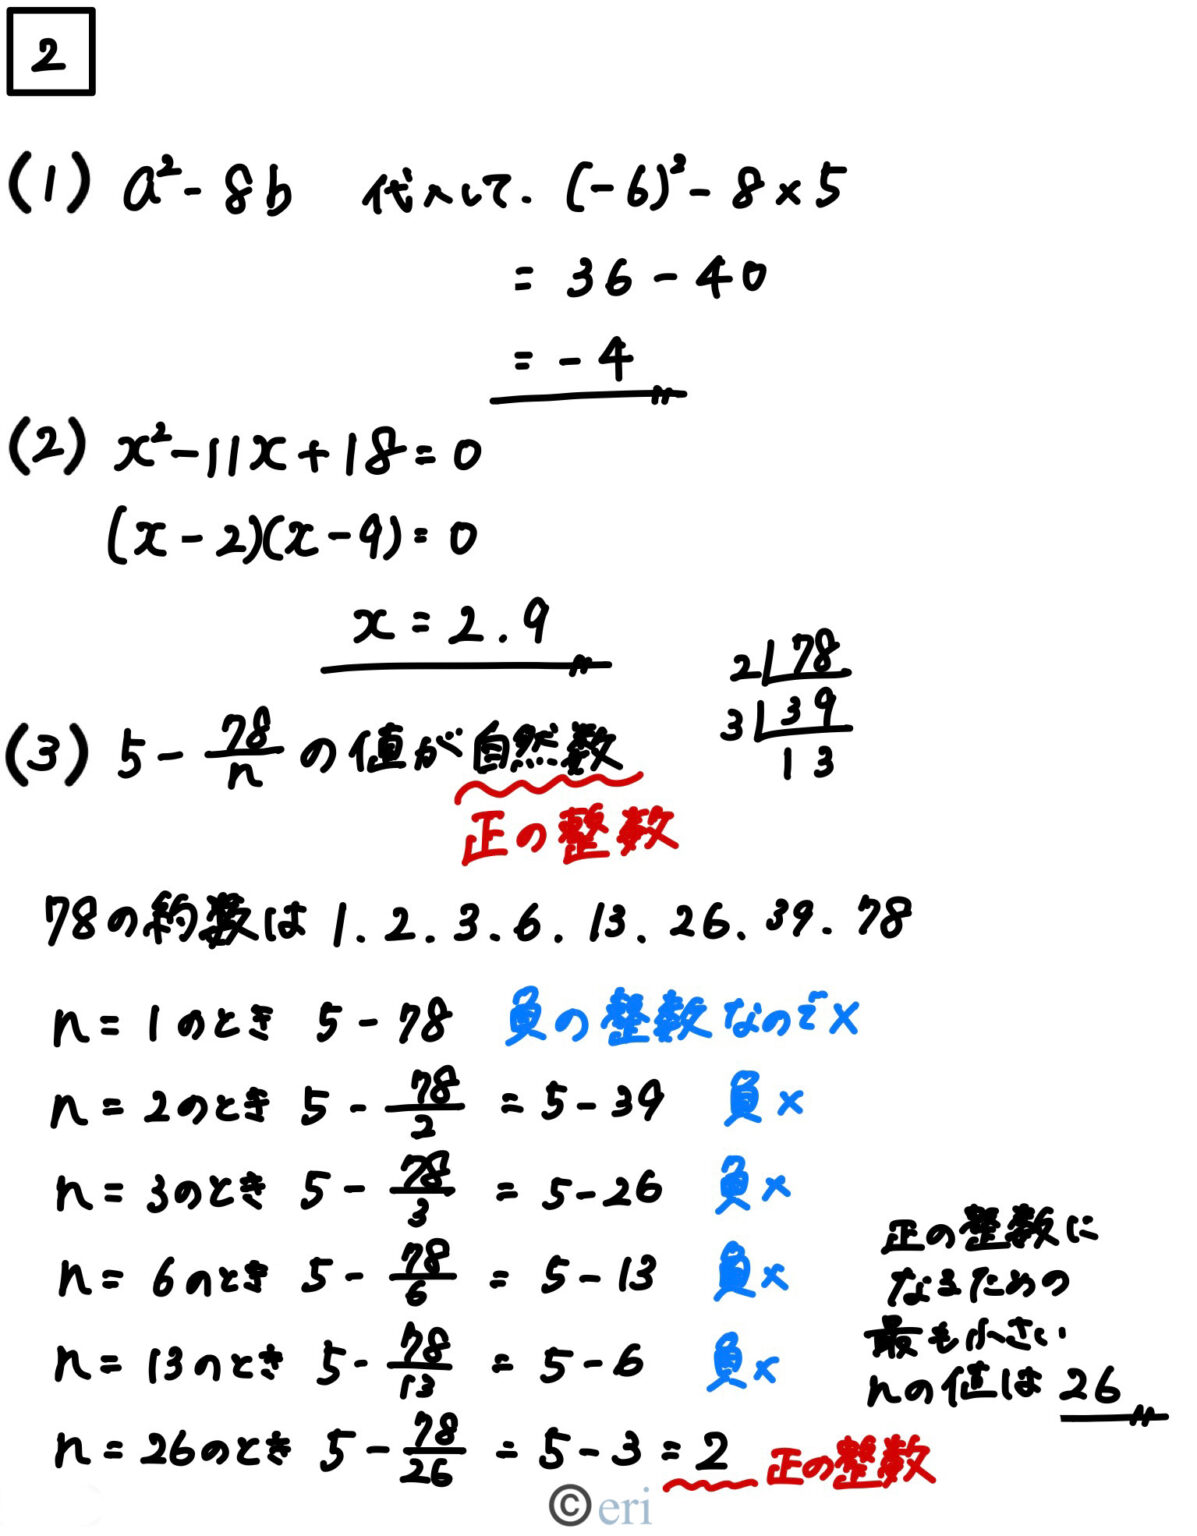 2
(1) a²-8b 代入して. (-6)²-8×5
= 36-40
= -4
(2) x²-11x+18=0
(x-2)(x-9)=0
x=2.9
2 78
3 39
13
(3) 5-78/n の値が自然数
正の整数
78の約数は 1.2.3.6.13.26.39.78
n=1のとき 5-78 負の整数なので×
n=2のとき 5-78/2 =5-39 負×
n=3のとき 5-78/3 =5-26 負×
n=6のとき 5-78/6 =5-13 負×
n=13のとき 5-78/13 =5-6 負×
n=26のとき 5-78/26 =5-3=2 正の整数
正の整数に
なるための
最も小さい
nの値は 26
©eri